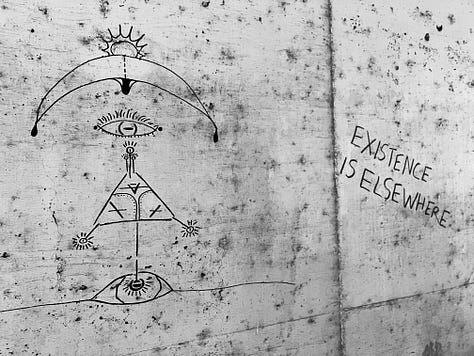 EXISTENCE
IS ELSEWHERE.